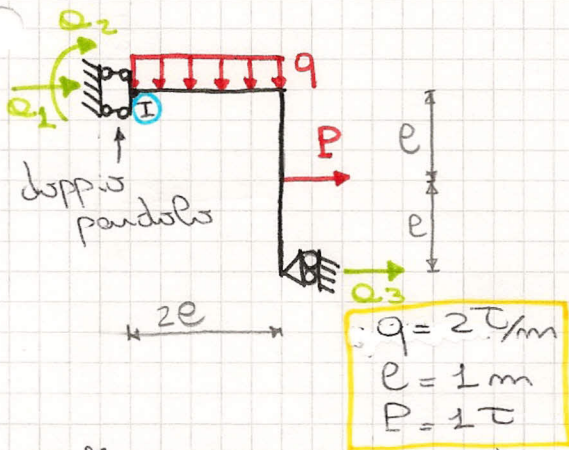 Q2
Q1
I
q
P
doppio
pendolo
Q3
l
l
2l
q = 2 T/m
l = 1 m
P = 1 T